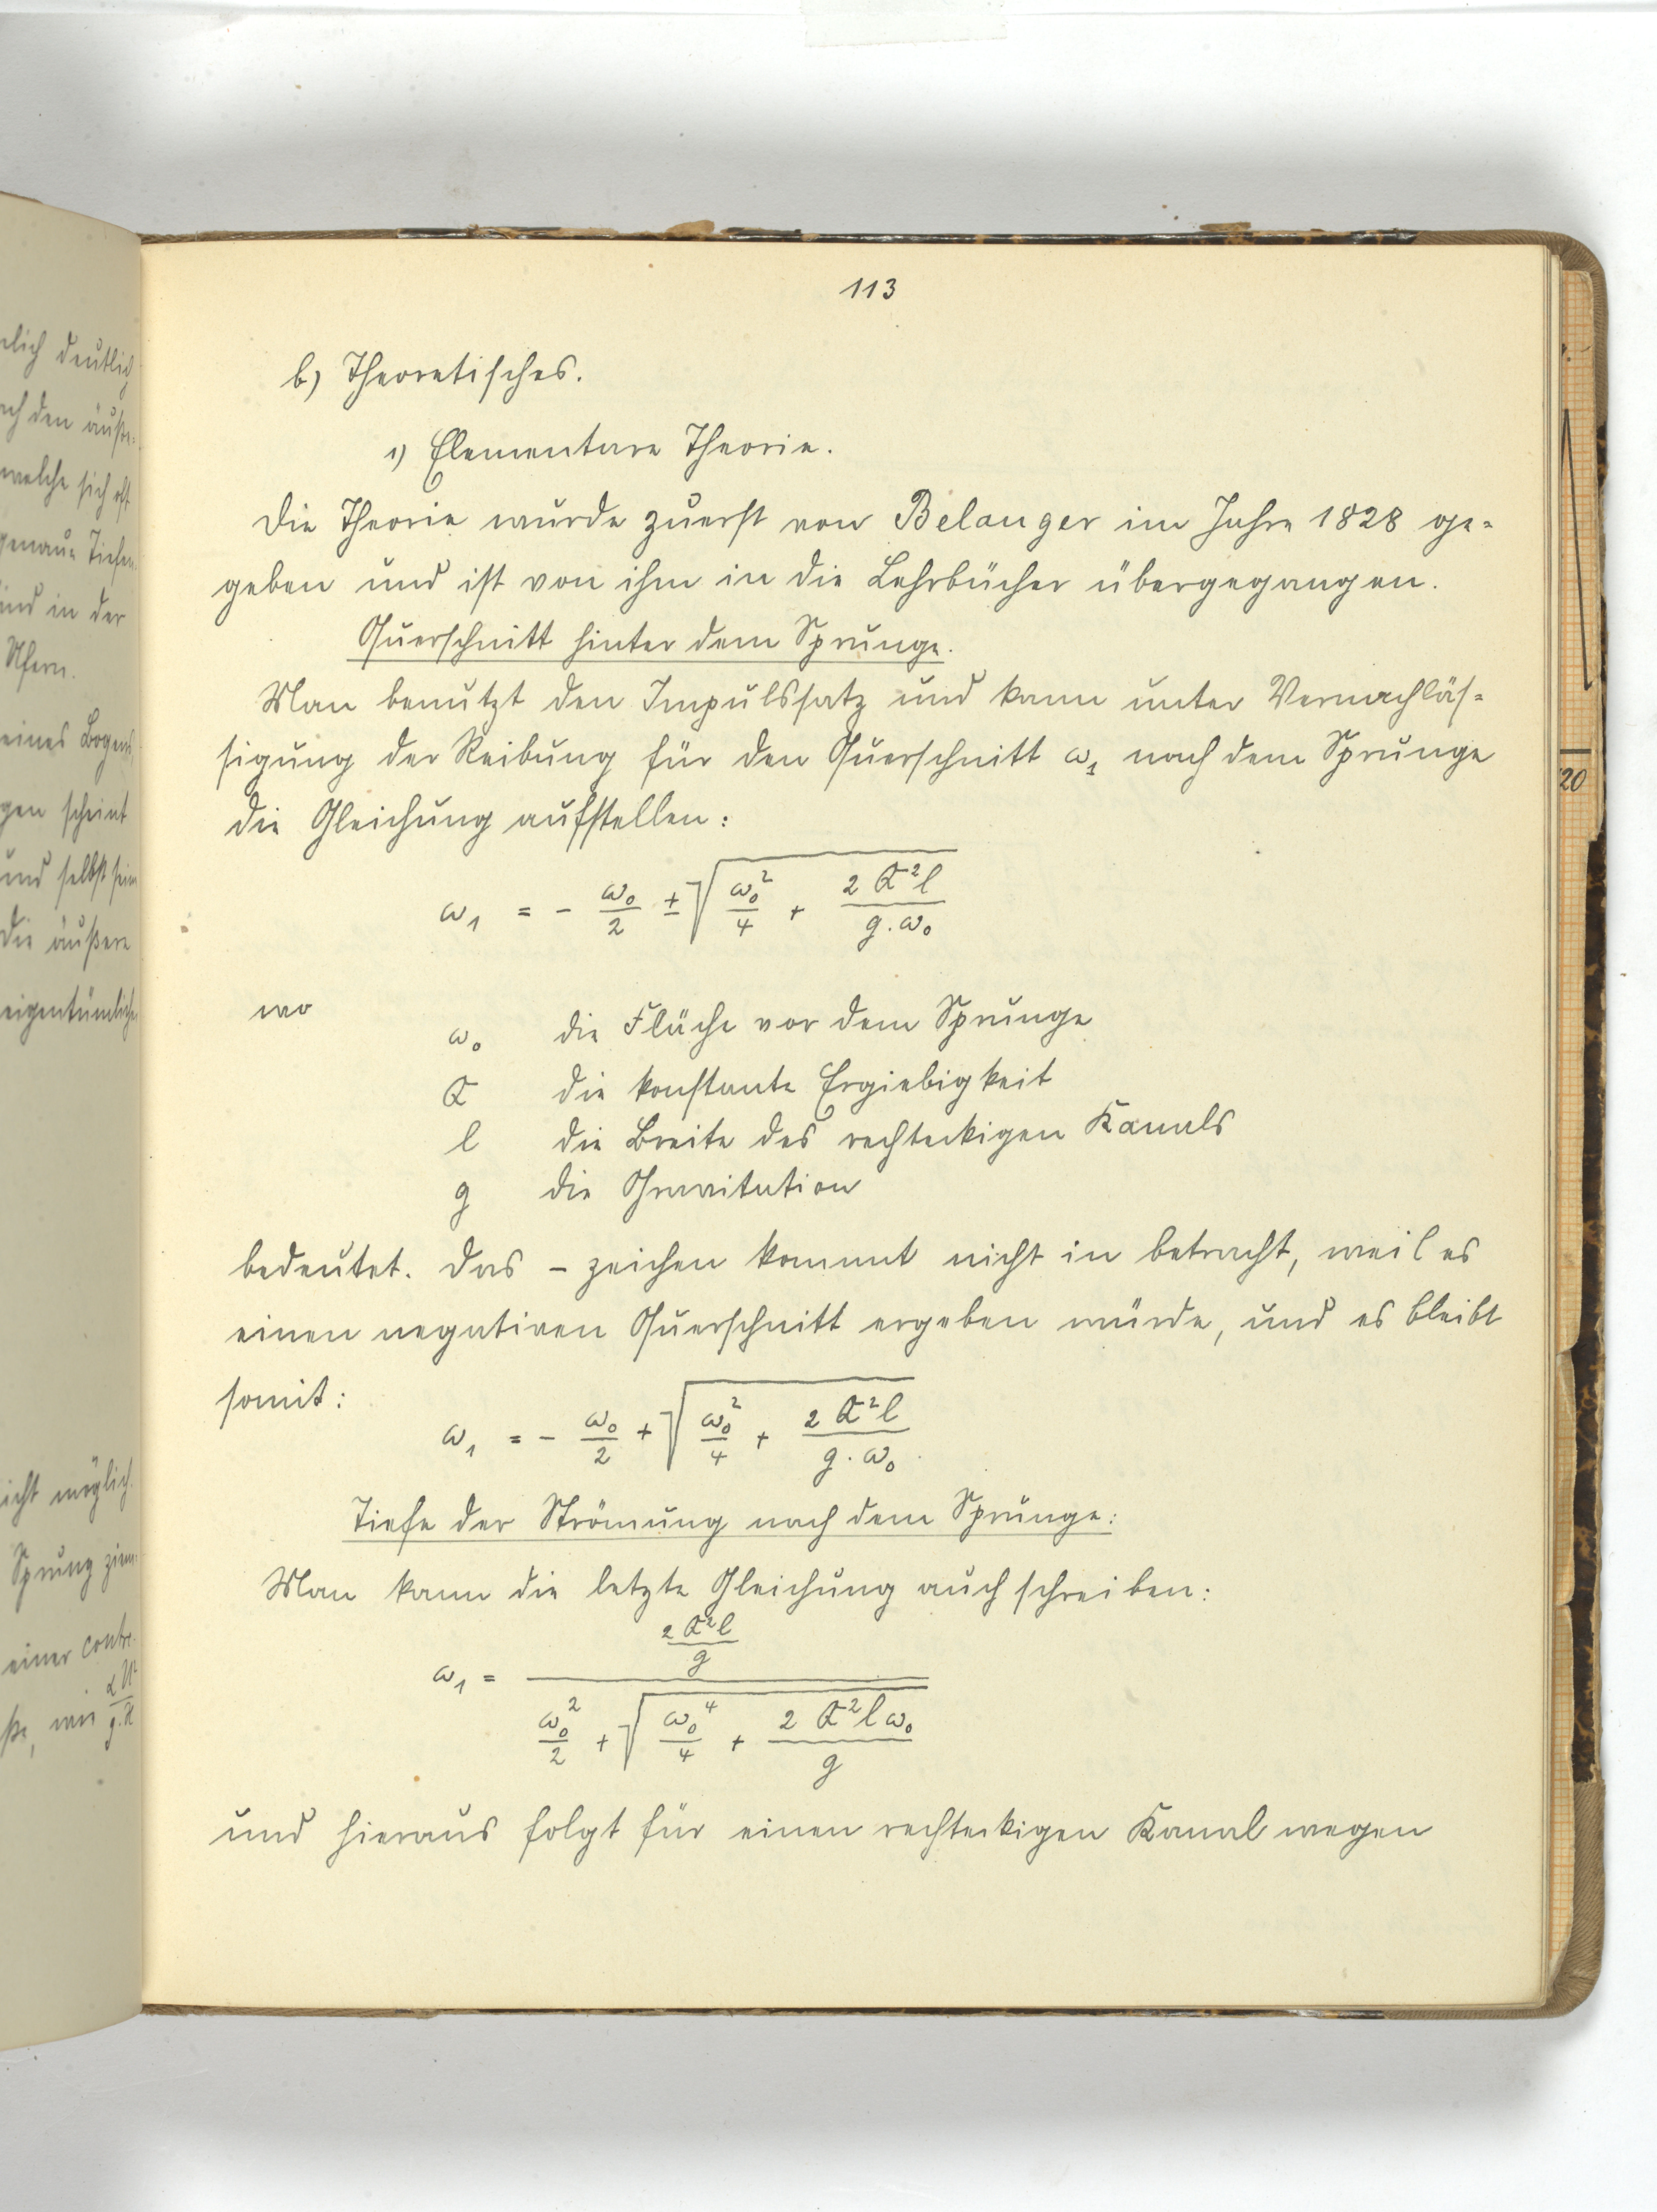 113
b) Theoretisches.
1) Elementare Theorie.
Die Theorie wurde zuerst von Belanger im Jahre 1828 ge=
geben und ist von ihm in die Lehrbücher übergegangen.
Querschnitt hinter dem Sprunge.
Man benutzt den Impulssatz und kann unter Vernachläs=
sigung der Reibung für den Querschnitt ω₁ nach dem Sprunge
die Gleichung aufstellen:
ω₁ = - ω₀/2 ± √(ω₀²/4 + 2 Q²l/(g.ω₀))
wo
ω₀ die Fläche vor dem Sprunge
Q die konstante Ergiebigkeit
l die Breite des rechteckigen Kanals
g die Gravitation
bedeutet. Das - zeichen kommt nicht in betracht, weil es
einen negativen Querschnitt ergeben würde, und es bleibt
somit:
ω₁ = - ω₀/2 + √(ω₀²/4 + 2 Q²l/(g.ω₀))
Tiefe der Strömung nach dem Sprunge:
Man kann die letzte Gleichung auch schreiben:
ω₁ = (2 Q²l/g) / (ω₀²/2 + √(ω₀⁴/4 + 2 Q²lω₀/g))
und hieraus folgt für einen rechteckigen Kanal wegen
deutlich
den
welche sich oft
genaue Tiefen
und in der
Ufern.
eines Bogens,
gen scheint
und selbst sein
die äußere
eigentümliche
icht möglich.
Sprung
einer
20